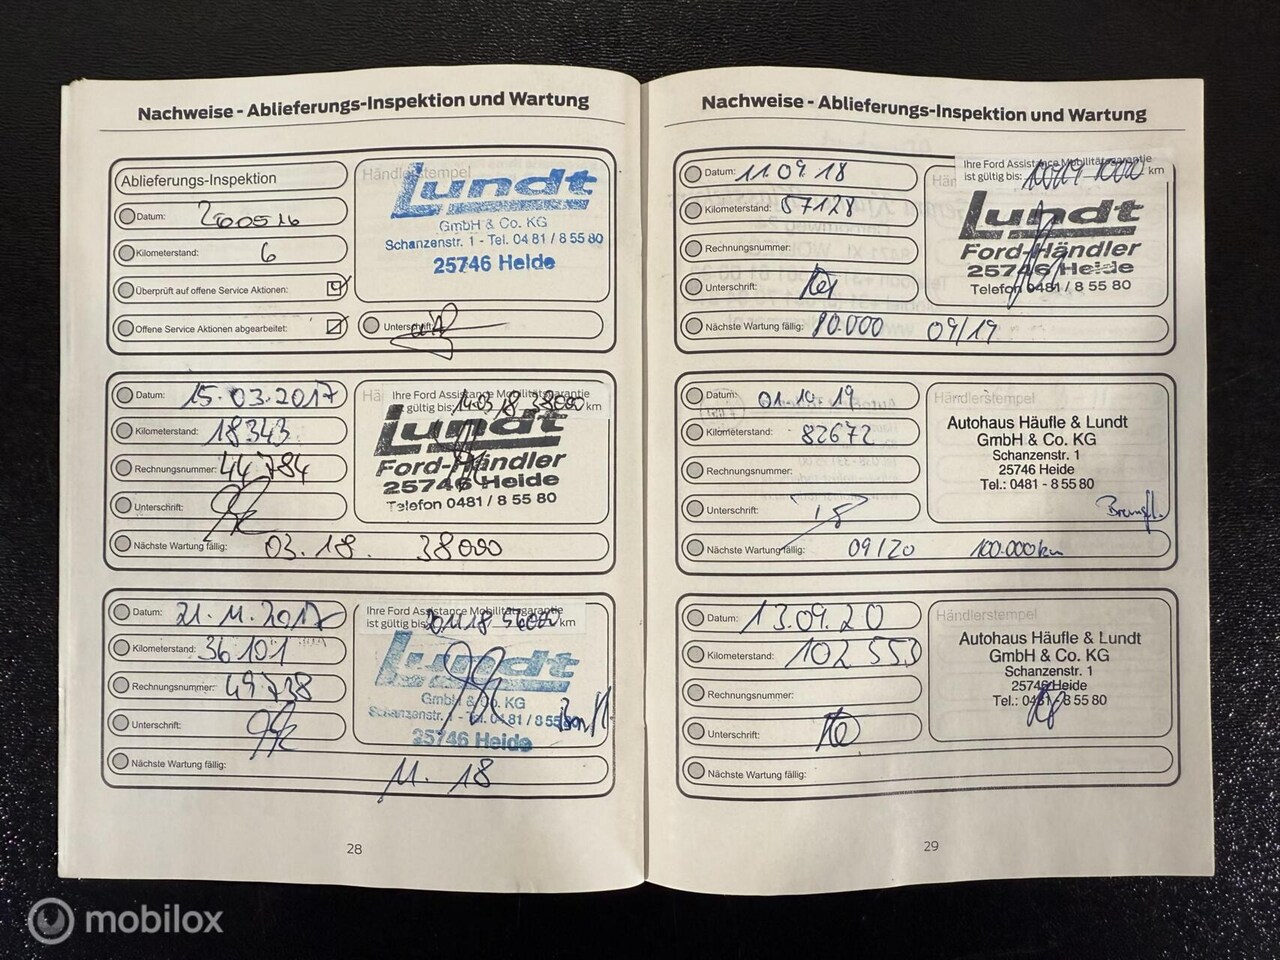 Nachweise - Ablieferungs-Inspektion und Wartung
Ablieferungs-Inspektion
Datum: 26.05.16
Kilometerstand: 6
Überprüft auf offene Service Aktionen:
Offene Service Aktionen abgearbeitet:
Händlerstempel
Lundt
GmbH & Co. KG
Schanzenstr. 1 - Tel. 04 81 / 8 55 80
25746 Heide
Unterschrift:
Datum: 15.03.2017
Kilometerstand: 18343
Rechnungsnummer: 44784
Unterschrift:
Nächste Wartung fällig: 03.18. 38000
Ihre Ford Assistance Mobilitätsgarantie
ist gültig bis: 14.03.18 38000 km
Lundt
Ford-Händler
25746 Heide
Telefon 0481 / 8 55 80
Datum: 21.11.2017
Kilometerstand: 36101
Rechnungsnummer: 49738
Unterschrift:
Nächste Wartung fällig: 11.18
Ihre Ford Assistance Mobilitätsgarantie
ist gültig bis: 56000 km
Lundt
GmbH & Co. KG
Schanzenstr. 1 - Tel. 04 81 / 8 55 80
25746 Heide
28
Nachweise - Ablieferungs-Inspektion und Wartung
Datum: 11.09.18
Kilometerstand: 57128
Rechnungsnummer:
Unterschrift:
Nächste Wartung fällig: 80.000 09/19
Ihre Ford Assistance Mobilitätsgarantie
ist gültig bis: km
Lundt
Ford-Händler
25746 Heide
Telefon 0481 / 8 55 80
Datum: 01.10.19
Kilometerstand: 82672
Rechnungsnummer:
Unterschrift:
Nächste Wartung fällig: 09/20 100.000km
Händlerstempel
Autohaus Häufle & Lundt
GmbH & Co. KG
Schanzenstr. 1
25746 Heide
Tel.: 0481 - 8 55 80
Datum: 13.09.20
Kilometerstand: 102553
Rechnungsnummer:
Unterschrift:
Nächste Wartung fällig:
Händlerstempel
Autohaus Häufle & Lundt
GmbH & Co. KG
Schanzenstr. 1
25746 Heide
Tel.: 0481 - 8 55 80
29
mobilox